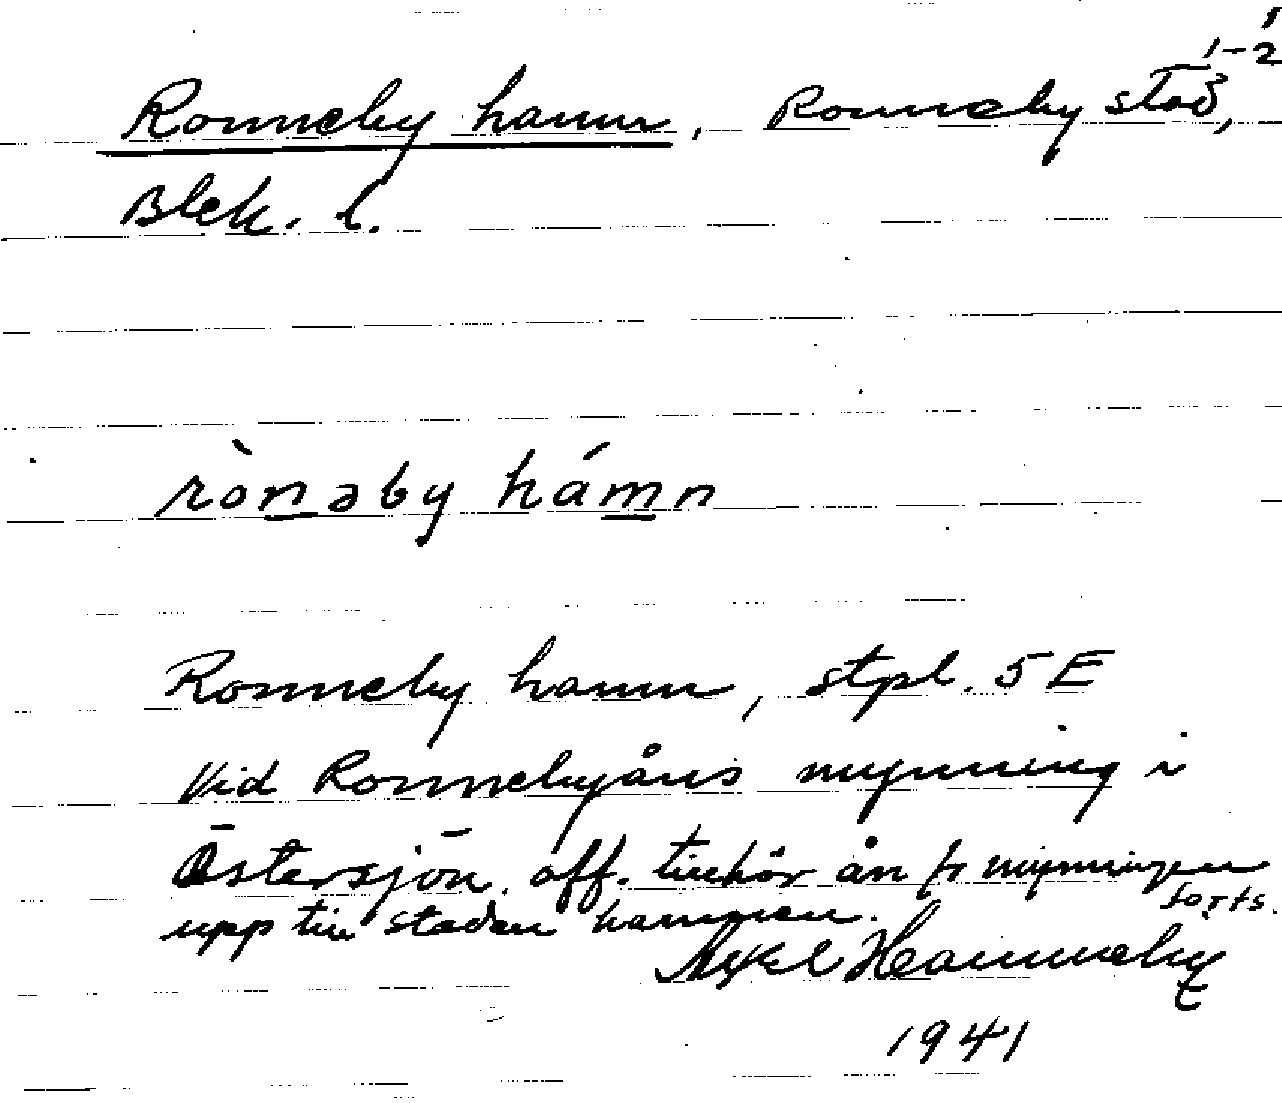 1-2
Ronneby hamn, Ronneby stad,
Blek. l.
rònəby hámn
Ronneby hamn, stpl. 5 E
Vid Ronnebyåns mynning i
Östersjön. off. tillhör ån fr mynningen
forts.
upp till staden hamnen.
Axel Hamneby
1941